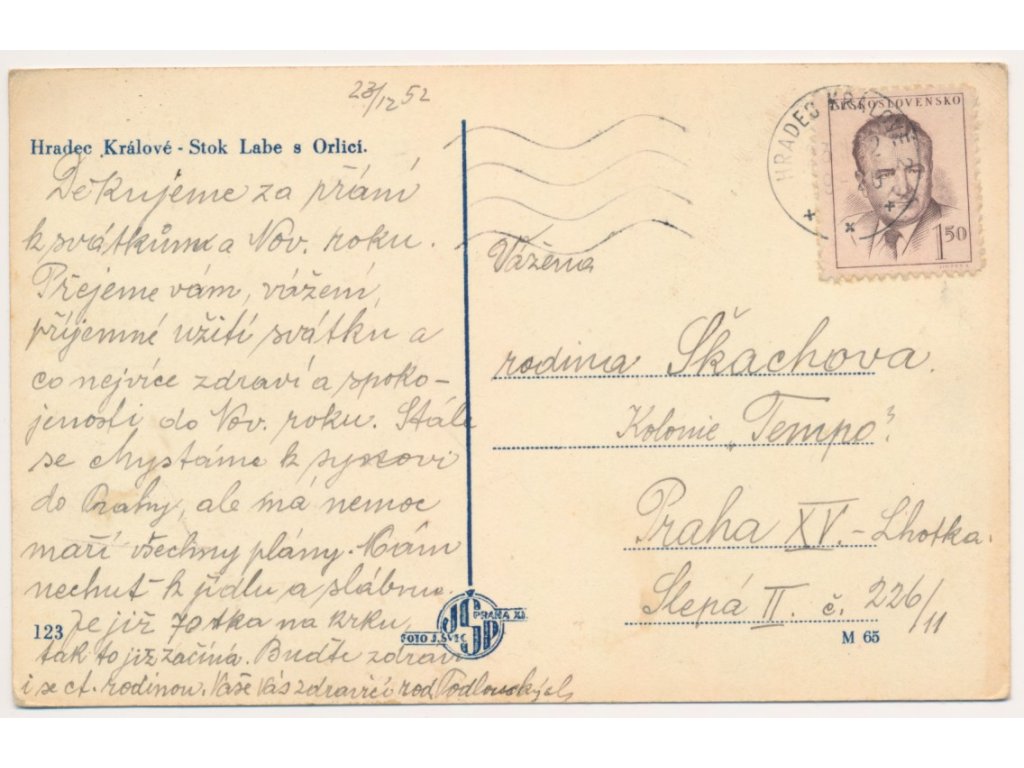 23/12 52
Hradec Králové - Stok Labe s Orlicí.
Děkujeme za přání
k svátkům a Nov. roku.
Přejeme vám, vážení,
příjemné užití svátků a
co nejvíce zdraví a spoko-
jenosti do Nov. roku. Stále
se chystáme k synovi
do Prahy, ale má nemoc
maří všechny plány. Mám
nechut k jídlu a slábnu.
Je již 70tka na krku,
tak to již začíná. Buďte zdrávi
i se ct. rodinou. Vaše Vás zdravící rod.
123
FOTO J. ŠVEC
PRAHA XI.
HRADEC KRÁLOVÉ
ČESKOSLOVENSKO
1 50
Vážená
rodina Škachova.
Kolonie „Tempo“.
Praha XV.-Lhotka.
Slepá II. č. 226/11
M 65